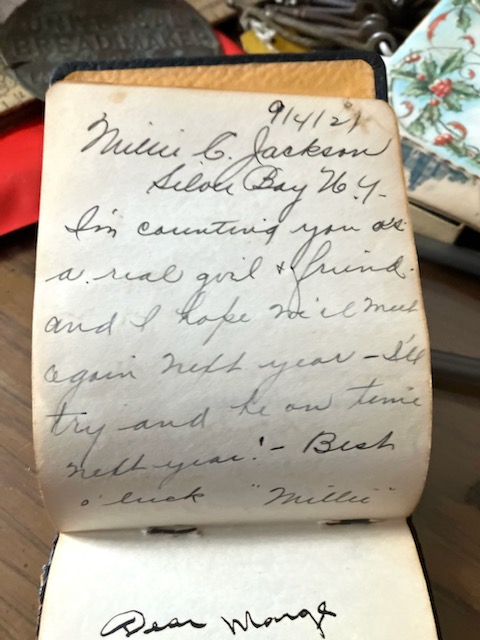 9/4/21
Millie C. Jackson
Silver Bay N.Y.
I'm counting you as
a real girl & friend.
and I hope we'll meet
again next year – I'll
try and be on time
next year! – Best
o' luck "Millie"
Dear Marge